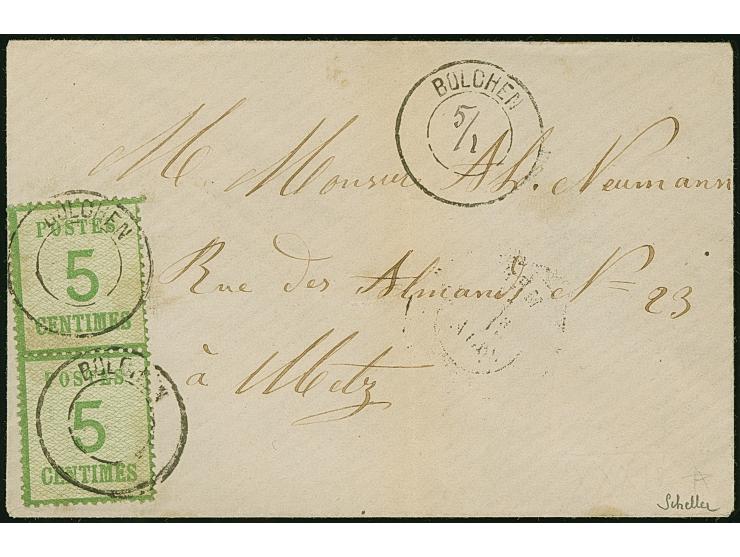 BOLCHEN
5/1
M. Monsieur Ah. Neumann
Rue des Almands N= 23
à Metz
BOLCHEN
POSTES
5
CENTIMES
BOLCHEN
POSTES
5
CENTIMES
Scheller